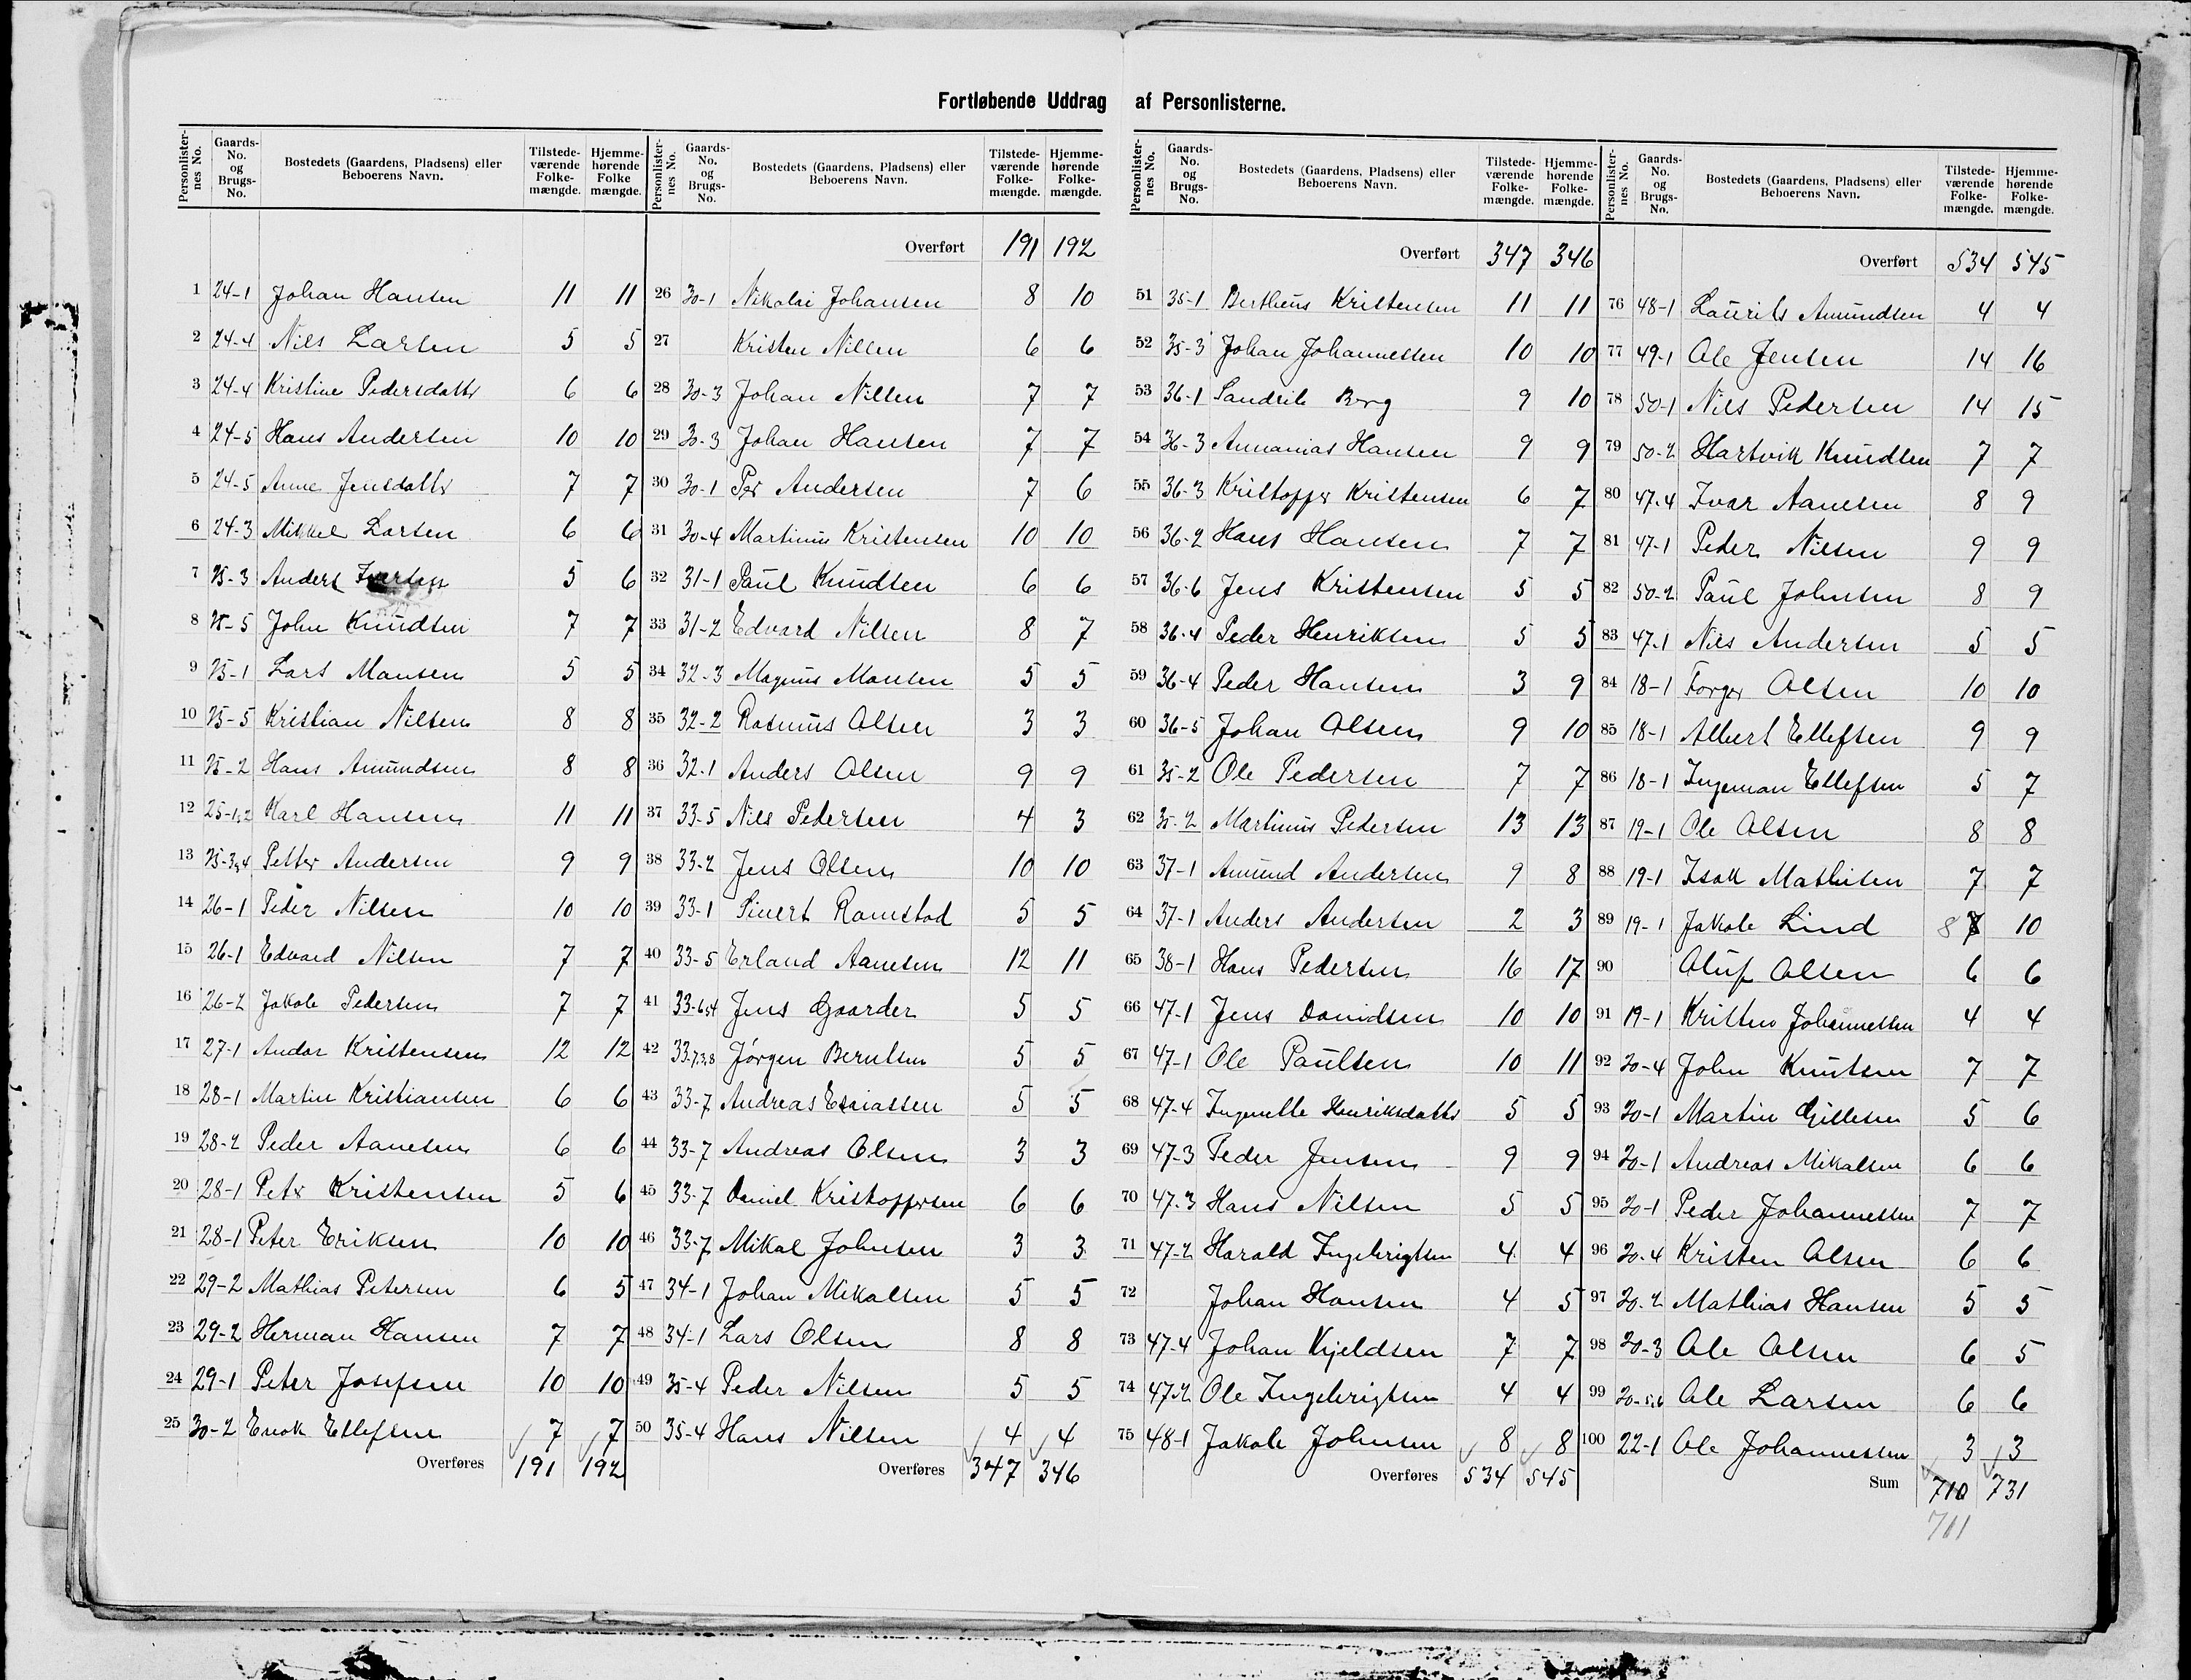 Fortløbende Uddrag af Personlisterne.
Personlister-nes No. Gaards-No. og Brugs-No. Bostedets (Gaardens, Pladsens) eller Beboerens Navn. Tilstede-værende Folke-mængde. Hjemme-hørende Folke mængde.
1 24-1 Johan Hansen 11 11
2 24-4 Nils Larsen 5 5
3 24-4 Kristine Pedersdattr 6 6
4 24-5 Hans Andersen 10 10
5 24-5 Anne Jensdattr 7 7
6 24-3 Mikkel Larsen 6 6
7 25-3 Anders Iversen 5 6
8 25-5 John Knudsen 7 7
9 25-1 Lars Monsen 5 5
10 25-5 Kristian Nilsen 8 8
11 25-2 Hans Amundsen 8 8
12 25-1,2 Karl Hansen 11 11
13 25-3,4 Petter Andersen 9 9
14 26-1 Peder Nilsen 10 10
15 26-1 Edvard Nilsen 7 7
16 26-2 Jakob Pedersen 7 7
17 27-1 Andor Kristensen 12 12
18 28-1 Martin Kristiansen 6 6
19 28-2 Peder Aanesen 6 6
20 28-1 Petr Kristensen 5 6
21 28-1 Peter Eriksen 10 10
22 29-2 Mathias Petersen 6 5
23 29-2 Herman Hansen 7 7
24 29-1 Peter Josefsen 10 10
25 30-2 Enok Ellefsen 7 7
Overføres 191 192
Personlister-nes No. Gaards-No. og Brugs-No. Bostedets (Gaardens, Pladsens) eller Beboerens Navn. Tilstede-værende Folke-mængde. Hjemme-hørende Folke-mængde.
Overført 191 192
26 30-1 Nikolai Johansen 8 10
27 Kristen Nilsen 6 6
28 30-3 Johan Nilsen 7 7
29 30-3 Johan Hansen 7 7
30 30-1 Per Andersen 7 6
31 30-4 Martinus Kristensen 10 10
32 31-1 Paul Knudsen 6 6
33 31-2 Edvard Nilsen 8 7
34 32-3 Magnus Monsen 5 5
35 32-2 Rasmus Olsen 3 3
36 32-1 Anders Olsen 9 9
37 33-5 Nils Pedersen 4 3
38 33-2 Jens Olsen 10 10
39 33-1 Sivert Ramstad 5 5
40 33-5 Erland Aanesen 12 11
41 33-6,4 Jens Gaarder 5 5
42 33-7,3,8 Jørgen Berntsen 5 5
43 33-7 Andreas Esaiassen 5 5
44 33-7 Andreas Olsen 3 3
45 33-7 Daniel Kristoffersen 6 6
46 33-7 Mikal Johnsen 3 3
47 34-1 Johan Mikalsen 5 5
48 34-1 Lars Olsen 8 8
49 35-4 Peder Nilsen 5 5
50 35-4 Hans Nilsen 4 4
Overføres 347 346
Personlister-nes No. Gaards-No. og Brugs-No. Bostedets (Gaardens, Pladsens) eller Beboerens Navn. Tilstede-værende Folke-mængde. Hjemme-hørende Folke-mængde.
Overført 347 346
51 35-1 Bertheus Kristensen 11 11
52 35-3 Johan Johannessen 10 10
53 36-1 Sandrik Berg 9 10
54 36-3 Annanias Hansen 9 9
55 36-3 Kristoffer Kristensen 6 7
56 36-2 Hans Hansen 7 7
57 36-6 Jens Kristensen 5 5
58 36-4 Peder Henriksen 5 5
59 36-4 Peder Hansen 3 9
60 36-5 Johan Olsen 9 10
61 35-2 Ole Pedersen 7 7
62 35-2 Martinus Pedersen 13 13
63 37-1 Amund Andersen 9 8
64 37-1 Anders Andersen 2 3
65 38-1 Hans Pedersen 16 17
66 47-1 Jens Davidsen 10 10
67 47-1 Ole Paulsen 10 11
68 47-4 Ingemette Henriksdattr 5 5
69 47-3 Peder Jensen 9 9
70 47-3 Hans Nilsen 5 5
71 47-2 Harald Ingebrigtsen 4 4
72 Johan Hansen 4 5
73 47-4 Johan Kjeldsen 7 7
74 47-2 Ole Ingebrigtsen 4 4
75 48-1 Jakob Johnsen 8 8
Overføres 534 545
Personlister-nes No. Gaards-No. og Brugs-No. Bostedets (Gaardens, Pladsens) eller Beboerens Navn. Tilstede-værende Folke-mængde. Hjemme-hørende Folke-mængde.
Overført 534 545
76 48-1 Laurits Amundsen 4 4
77 49-1 Ole Jensen 14 16
78 50-1 Nils Pedersen 14 15
79 50-2 Hartvik Knudsen 7 7
80 47-4 Ivar Aanesen 8 9
81 47-1 Peder Nilsen 9 9
82 50-2 Paul Johnsen 8 9
83 47-1 Nils Andersen 5 5
84 18-1 Torger Olsen 10 10
85 18-1 Albert Ellefsen 9 9
86 18-1 Ingeman Ellefsen 5 7
87 19-1 Ole Olsen 8 8
88 19-1 Isak Mathisen 7 7
89 19-1 Jakob Lind 8 7 10
90 Oluf Olsen 6 6
91 19-1 Kristen Johannessen 4 4
92 20-4 John Knutsen 7 7
93 20-1 Martin Gillesen 5 6
94 20-1 Andreas Mikalsen 6 6
95 20-1 Peder Johannessen 7 7
96 20-4 Kristen Olsen 6 6
97 20-2 Mathias Hansen 5 5
98 20-3 Ole Olsen 6 5
99 20-5,6 Ole Larsen 6 6
100 22-1 Ole Johannessen 3 3
Sum 710 731
711